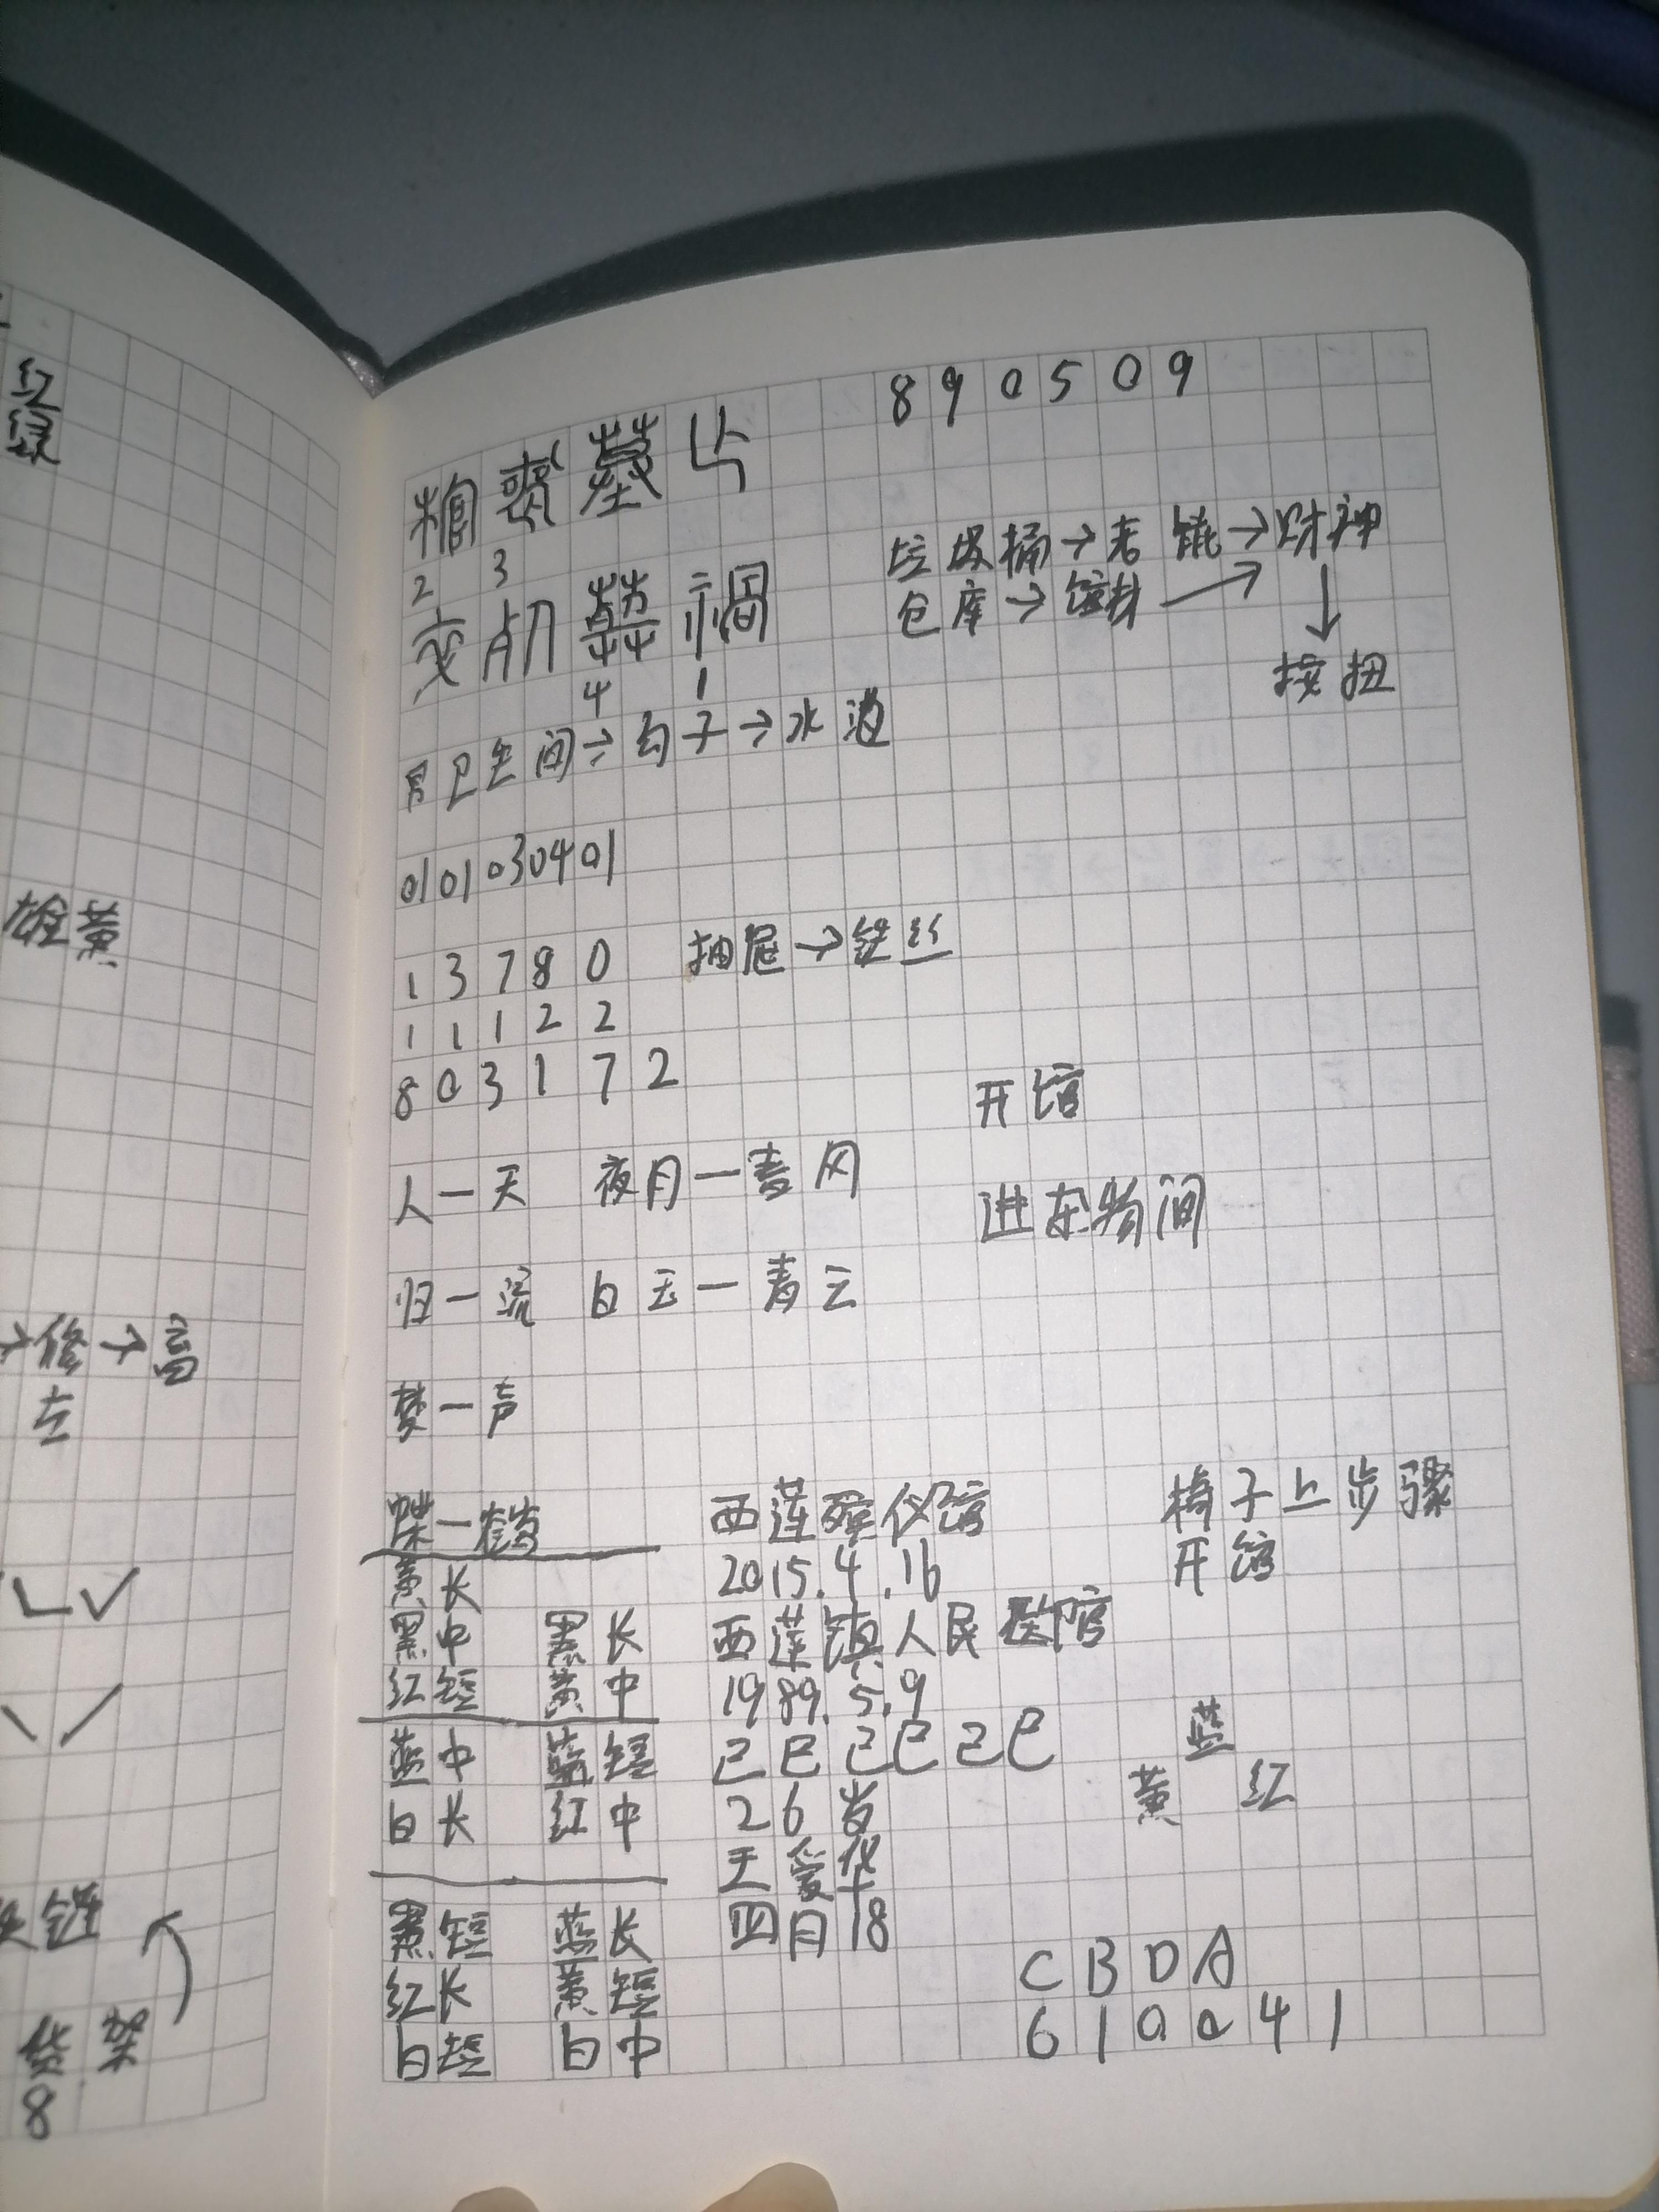 红
绿
雄黄
→修→高
左
链
货架
8
890509
垃圾桶→老馄→财神
仓库→馆材
↓
按扭
2 3
4 1
男卫生间→勾子→水池
0101030401
13780 抽屉→铁丝
11122
803172
开馆
人一天 夜月一春风
进杂物间
归一流 白玉一青云
梦一声
蝶一鹤
西莲殡仪馆
2015.4.16
西莲镇人民医院
1989.5.9
己巳己巳己巳
26岁
王爱华
四月18
椅子上步骤
开馆
黄长
黑中 黑长
红短 黄中
蓝中 蓝短
白长 红中
黑短 蓝长
红长 黄短
白短 白中
蓝
黄 红
CBDA
610041